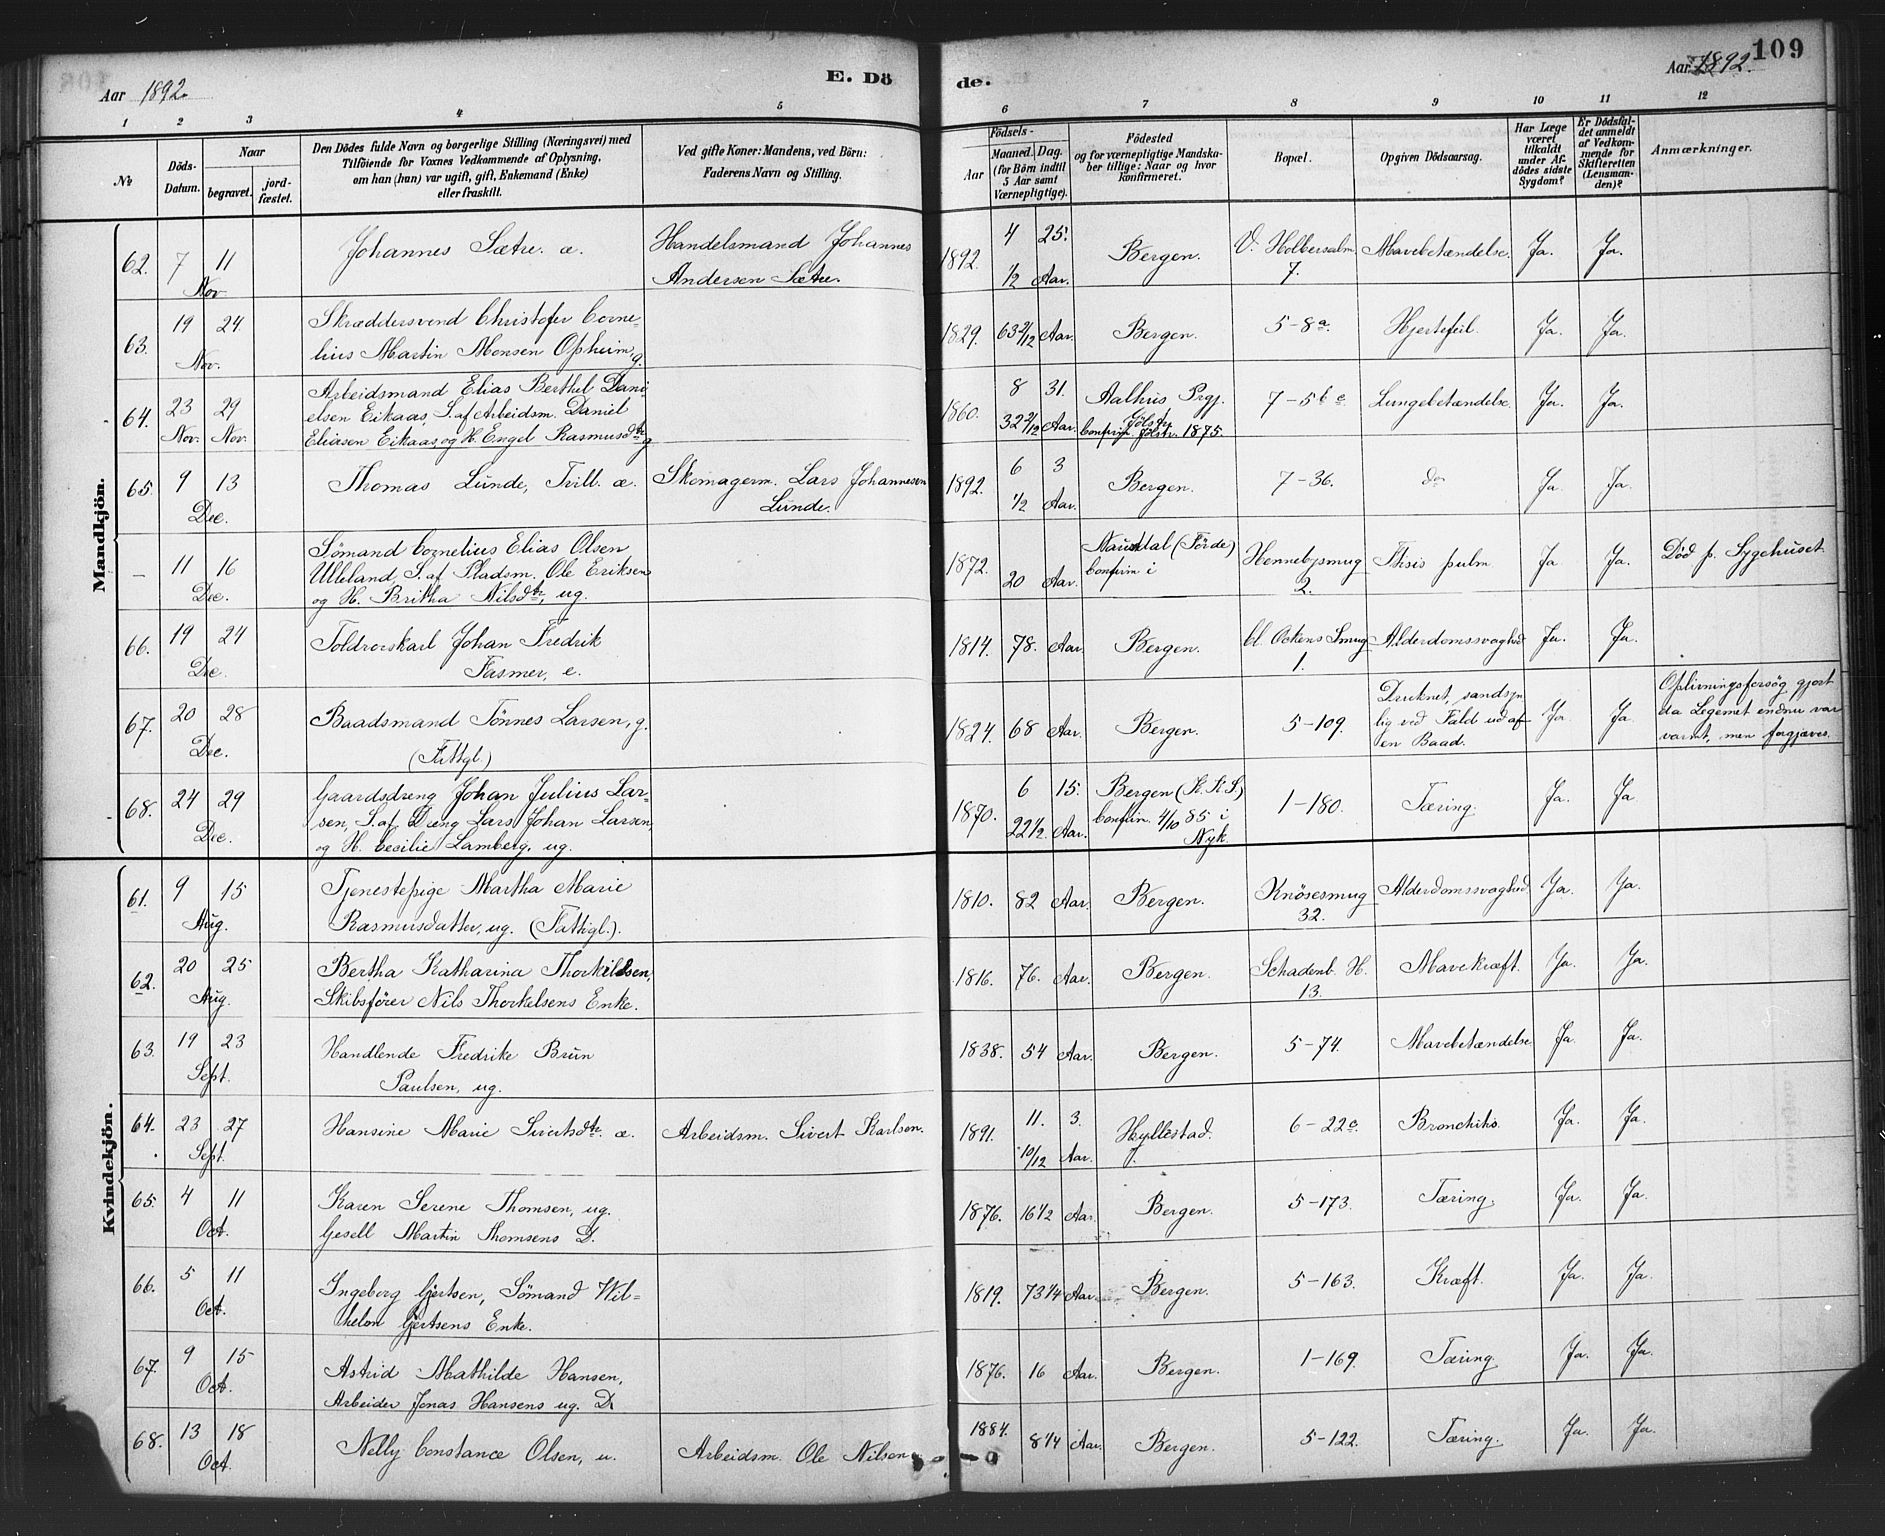 109
Aar 1892. E. Dö de. Aar 1892.
1 2 3 4 5 6 7 8 9 10 11 12
No
Döds-Datum.
Naar
begravet.
jord-fæstet.
Den Dödes fulde Navn og borgerlige Stilling (Næringsvei) med
Tilföiende for Voxnes Vedkommende af Oplysning,
om han (hun) var ugift, gift, Enkemand (Enke)
eller fraskilt.
Ved gifte Koner: Mandens, ved Börn:
Faderens Navn og Stilling.
Födsels-
Aar
Maaned. Dag.
(for Börn indtil
5 Aar samt
Værnepligtige).
Födested
og for værnepligtige Mandska-
ber tillige: Naar og hvor
konfirmeret.
Bopæl.
Opgiven Dödsaarsag.
Har Læge
været
tilkaldt
under Af-
dödes sidste
Sygdom?
Er Dödsfal-
det anmeldt
af Vedkom-
mende for
Skifteretten
(Lensman-
den)?
Anmærkninger.
Mandkjön.
62. 7 11 Nov. Johannes Sætre. æ. Handelsmand Johannes
Andersen Sætre. 1892. 4 25. 1/2 Aar. Bergen. V. Holbersalm. 7. Mavebetændelse. Ja. Ja.
63. 19 24. Nov. Skræddersvend Christofer Corne-
lius Martin Monsen Opheim, g. 1829. 63 2/12 Aar. Bergen. 5-8a. Hjertefeil. Ja. Ja.
64. 23 Nov. 29 Nov. Arbeidsmand Elias Berthel Dani-
elsen Eikaas, S. af Arbeidsm. Daniel
Eliasen Eikaas, og H. Engel Rasmusdtr g 1860. 8 31. 32 2/12 Aar. Aalhus Prgj.
Jölster
Confirm. Jölstr. 1875. 7-5b c. Lungebetændelse. Ja. Ja.
65. 9 13 Dec. Thomas Lunde, Trill. æ. Skomagerm. Lars Johannesen
Lunde. 1892. 6 3 1/2 Aar. Bergen. 7-36. do Ja. Ja.
— 11 16 Dec. Sömand Cornelius Elias Olsen
Ulleland, S. af Pladsm. Ole Eriksen
og H. Britha Nilsdtr, ug. 1872. 20 Aar. Naustdal (Förde)
Confirm i Hennebysmug 2. Thsis pulm Ja Ja. Död p. Sygehuset
66. 19 24 Dec. Toldroerskarl Johan Fredrik
Fasmer, e. 1814. 78. Aar. Bergen. Cl. Ockens Smug 1. Alderdomssvaghed Ja. Ja.
67. 20 28 Dec. Baadsmand Tönnes Larsen, g.
(Fattgl.) 1824. 68 Aar. Bergen. 5-109. Druknet, sandsyn
lig ved Fald ud af
en Baad. Ja Ja Oplivningsforsög gjort
da Legemet endnu var
varmt, men forgjæves.
68. 24 29 Dec. Gaardsdreng Johan Julius Lar-
sen, S. af Dreng Lars Johan Larsen,
og H. Cecilie Lamberg, ug. 1870. 6 15. 22 1/2. Aar. Bergen (K. K. S.)
Confirm. 4/10 85 i
Nyk. 1-180. Tæring. Ja. Ja
Kvindekjön.
61. 9 15 Aug. Tjenestepige Martha Marie
Rasmusdatter, ug. (Fattigl.). 1810. 82 Aar. Bergen. Knösesmug 32. Alderdomssvaghed Ja. Ja.
62. 20 25 Aug. Bertha Katharina Thorkildsen,
Skibsförer Nils Thorkelsens Enke. 1816. 76. Aar. Bergen. Schadenb. H. 13. Mavekræft. Ja. Ja.
63. 19 23 Sept. Handlende Fredrike Brun
Paulsen, ug. 1838. 54 Aar. Bergen. 5-74. Mavebetændelse Ja. Ja.
64. 23 27 Sept. Hansine Marie Sivertsdtr. æ. Arbeidsm. Sivert Karlsen. 1891. 11. 3. 10/12 Aar. Hyllestad. 6-22c. Bronchitis. Ja. Ja.
65. 4 11 Oct. Karen Serene Thomsen, ug.
Gesell Martin Thomsens D. 1876. 16 1/2 Aar. Bergen. 5-173. Tæring. Ja. Ja.
66. 5 11 Oct. Ingeborg Gjertsen, Sömand Wil-
helm Gjertsens Enke. 1819. 73 1/4 Aar. Bergen. 5-163. Kræft. Ja. Ja.
67. 9 15 Oct. Astrid Mathilde Hansen,
Arbeider Jonas Hansens ug. D. 1876. 16 Aar. Bergen. 1-169. Tæring Ja. Ja.
68. 13 18 Oct. Nelly Constance Olsen, u. Arbeidsm. Ole Nilsen 1884. 8 1/4 Aar. Bergen. 5-122. Tæring. Ja. Ja.